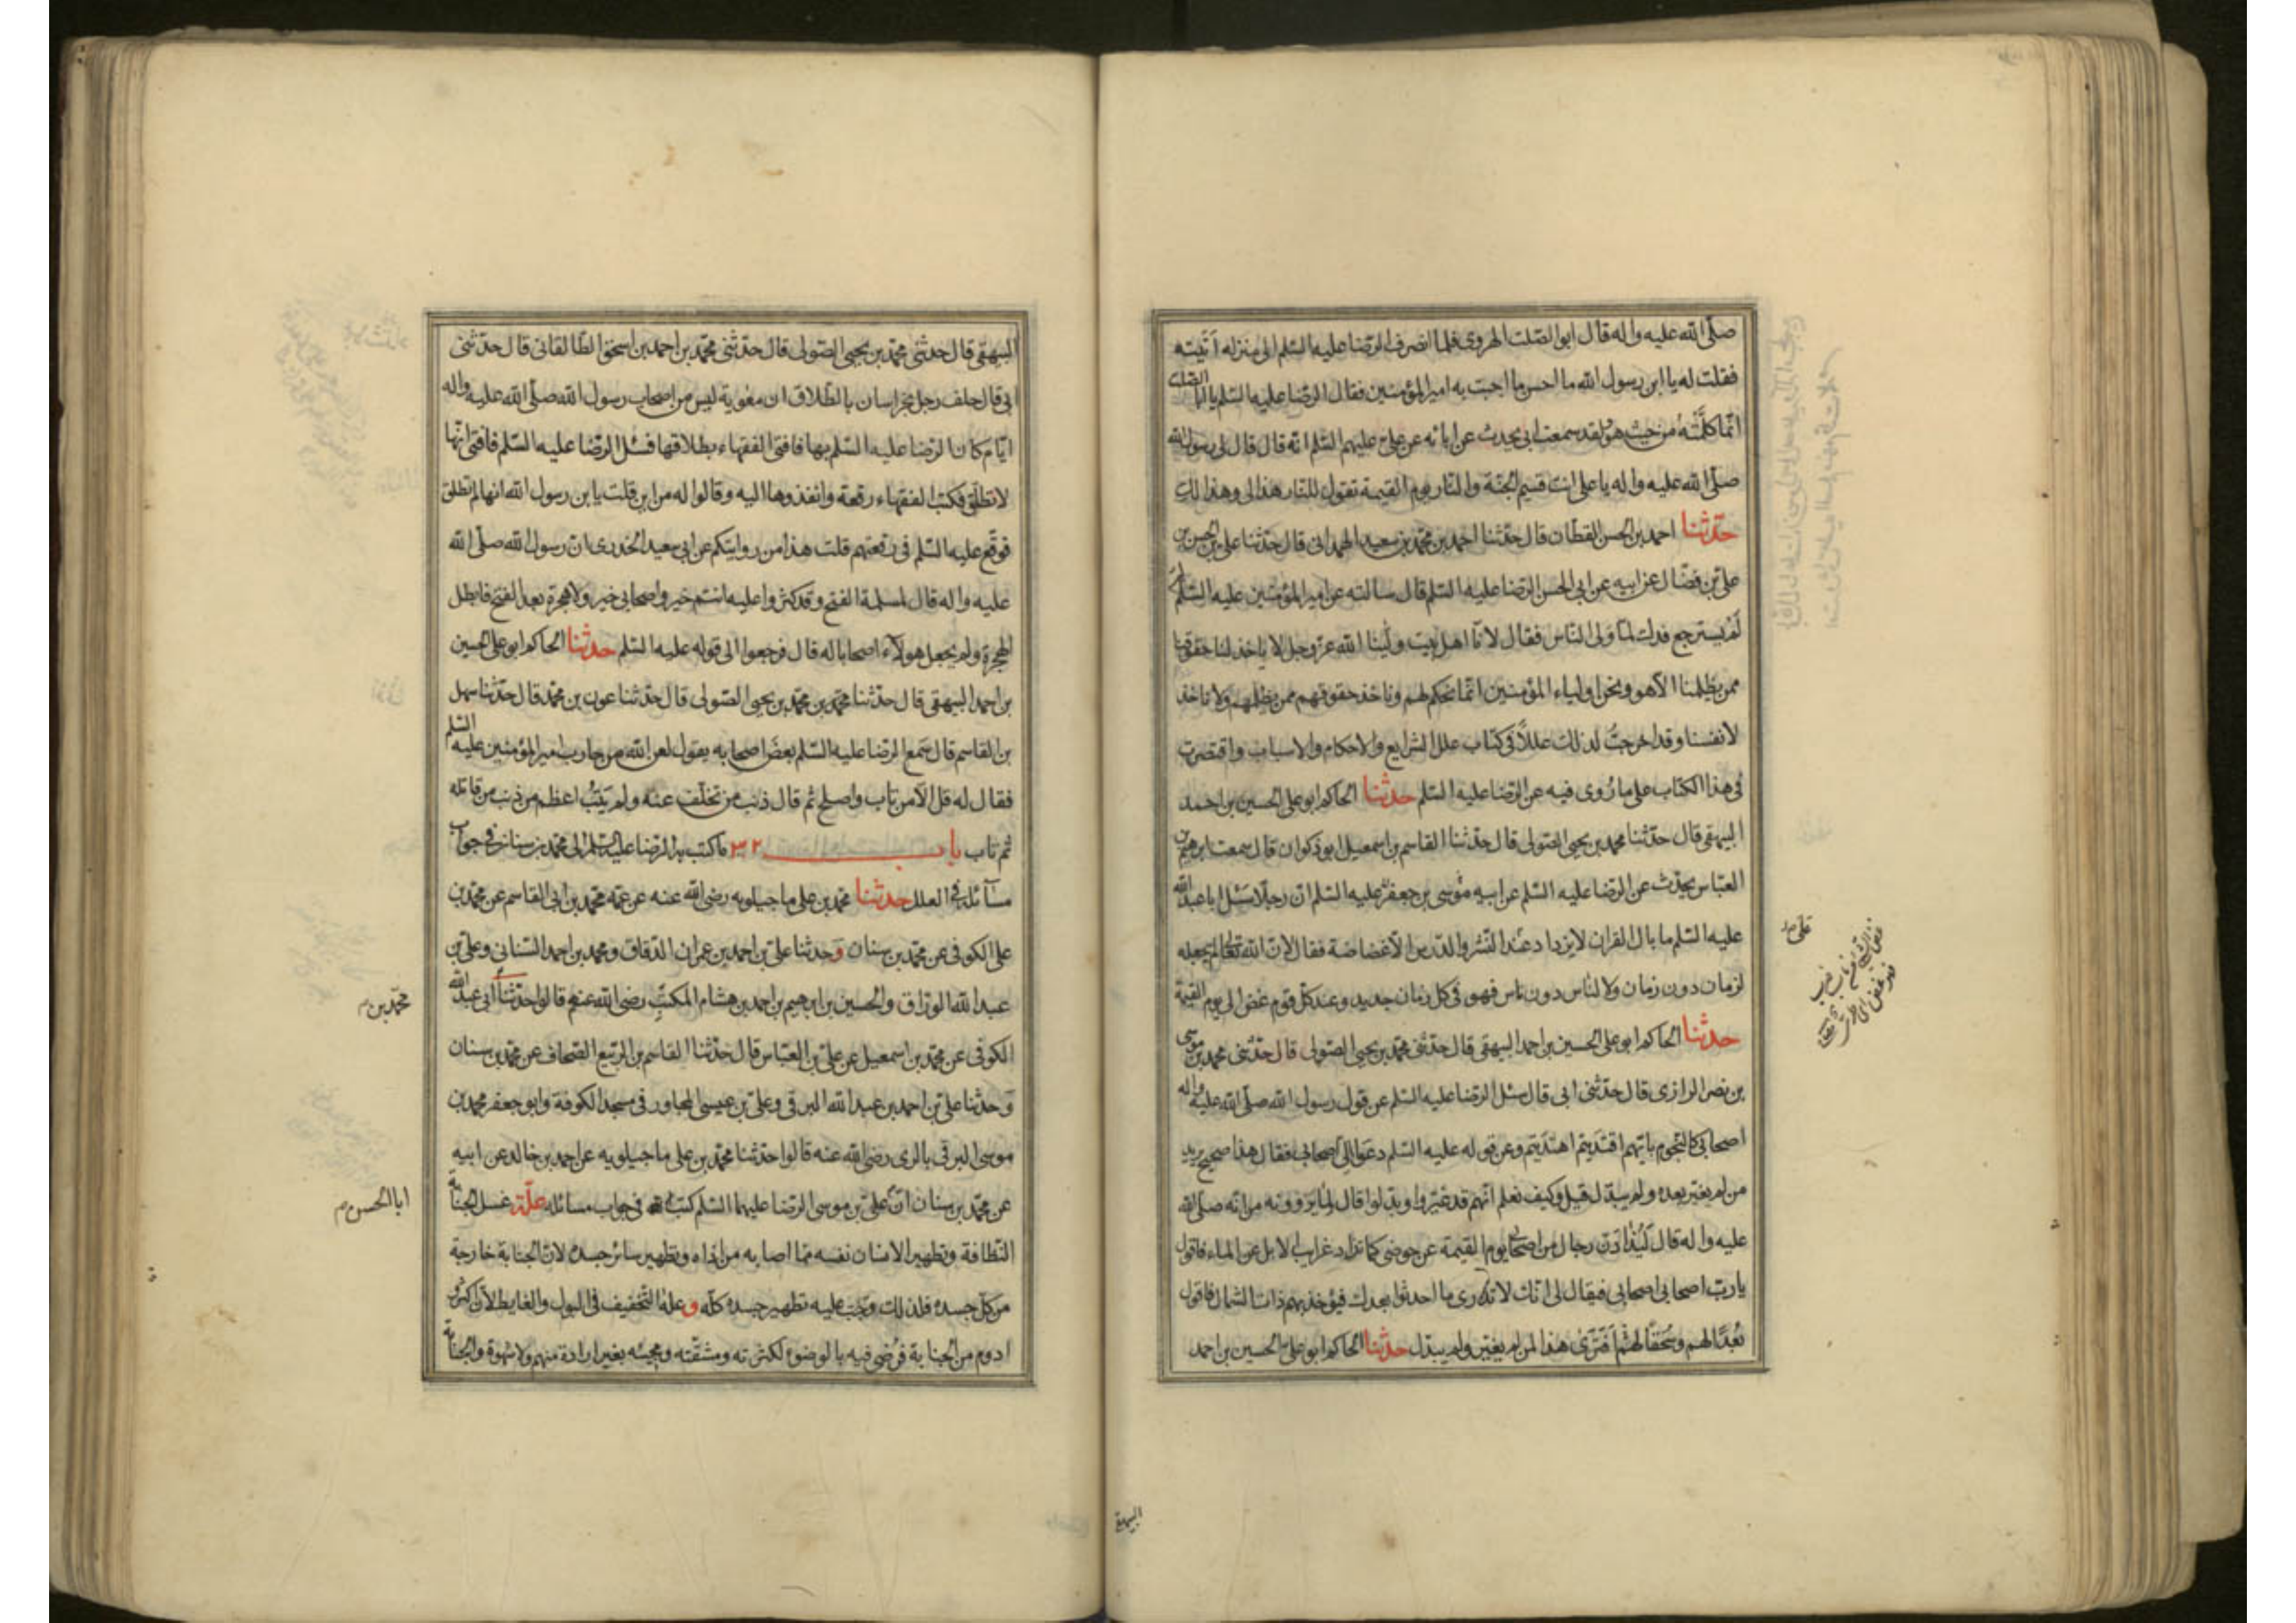 صلّى الله عليه واله قال ابو الصّلت الهروى فلما انصرف الرّضا عليه السّلم الى منزله اَتَيته
فقلت له يا ابن رسول الله ما احسن ما اجبت به امير المؤمنين فقال الرّضا عليه السّلم يا ابا الصّلت
انّما كلّمْتُهُ من حيث هو ولقد سمعت ابى يحدث عن ابائه عن علىّ عليهم السّلم انّه قال قال لى رسول الله
صلّى الله عليه واله يا على انت قسيم الجنّة والنّار يوم القيمة تقول للنّار هذا لى وهذا لك
حدّثنا احمد بن الحسن القطّان قال حدّثنا احمد بن محمّد بن سعيد الهمدانى قال حدّثنا على بن الحسن بن
على بن فضّال عن ابيه عن ابى الحسن الرّضا عليه السّلم قال سالته عن امير المؤمنين عليه السّلم لِمَ
لَمْ يسترجع فدك لمّا وَلى النّاس فقال لانّا اهل بيت وليُّنا الله عزّ وجل لا ياخذ لنا حقوقنا
ممن يظلمنا الّا هو ونحن اولياء المؤمنين انّما نحكم لهم وناخذ حقوقهم ممن يظلمهم ولا ناخذ
لانفسنا وقد اخرجتُ لذلك عللًا فى كتاب علل الشرايع والاحكام والاسباب واقتصرت
فى هذا الكتاب على ما رُوى فيه عن الرّضا عليه السّلم حدّثنا الحاكم ابو على الحسين بن احمد
البيهقى قال حدّثنا محمد بن يحيى الصّولى قال حدّثنا القاسم بن اسمعيل ابو ذكوان قال سمعت ابرهيم بن
العبّاس يحدّث عن الرّضا عليه السّلم عن ابيه موسى بن جعفر عليه السّلم انّ رجلًا سَئل ابا عبد الله
عليه السّلم ما بال القران لا يزداد عند النّشر والدّرس الّا غضاضة فقال لانّ الله تعالى لم يجعله
لزمان دون زمان ولا لناس دون ناس فهو فى كل زمان جديد وعند كلّ قوم غضّ الى يوم القيمة
حدّثنا الحاكم ابو على الحسين بن احمد البيهقى قال حدّثنى محمّد بن يحيى الصّولى قال حدّثنى محمد بن موسى
بن نصر الرازى قال حدّثنى ابى قال سئل الرّضا عليه السّلم عن قول رسول الله صلّى الله عليه واله
اصحابى كالنّجوم بايّهم اقتدَيتم اهتدَيتم وعن قوله عليه السّلم دعَوا لى اصحابى فقال هذا صحيح يريد
من لم يغيّر بعده ولم يبدّل قيل وكيف نعلم انّهم قد غيّروا وبدّلوا قال لما يَروونه من انّه صلّى الله
عليه واله قال ليُذادَنّ رجال من اصحابى يوم القيمة عن حوضى كما تذاد غرايب الابل عن الماء فاقول
يا ربّ اصحابى اصحابى فيقال لى انّك لا تدرى ما احدثوا بعدك فيؤخذ بهم ذات الشّمال فاقول
بُعدًا لهم وسُحقًا لهم اَفَتَرى هذا لمن لم يغيّر ولم يبدّل حدّثنا الحاكم ابو على الحسين بن احمد
البيهقى
البيهقى قال حدّثنى محمّد بن يحيى الصّولى قال حدّثنى محمّد بن احمد بن اسحق الطّالقانى قال حدّثنى
ابى قال حلف رجل بخراسان بالطّلاق ان معوية ليس من اصحاب رسول الله صلّى الله عليه واله
ايّام كان الرّضا عليه السّلم بها فافتى الفقهاء بطلاقها فسئل الرّضا عليه السّلم فافتى انّها
لا تطلّق فكتب الفقهاء رقعة وانفذوها اليه وقالوا له من اين قلت يا بن رسول الله انها لم تطلق
فوقّع عليه السّلم فى رقعتهم قلت هذا من روايتكم عن ابى سعيد الخدرى انّ رسول الله صلّى الله
عليه واله قال لمسلمة الفتح وقد كثروا عليه انتم خير واصحابى خير ولا هجرة بعد الفتح فابطل
الهجرة ولم يجعل هولاء اصحابا له قال فرجعوا الى قوله عليه السّلم حدّثنا الحاكم ابو على الحسين
بن احمد البيهقى قال حدّثنا محمّد بن محمّد بن يحيى الصّولى قال حدّثنا عون بن محمّد قال حدّثنا سهل
بن القاسم قال سَمع الرّضا عليه السّلم بعضَ اصحابه يقول لعن الله من حارب امير المؤمنين عليه السّلم
فقال له قل الّا من تاب واصلح ثم قال ذنب من تخلّف عنه ولم يَتُبْ اعظم من ذنب من قاتله
ثم تاب باب ٣٢ ما كتب به الرّضا عليه السّلم الى محمّد بن سنان فى جواب
مسائله فى العلل حدّثنا محمّد بن على ماجيلويه رضى الله عنه عن عمّه محمّد بن ابى القاسم عن محمّد بن
على الكوفى عن محمّد بن سنان وحدثنا على بن احمد بن عمران الدّقاق ومحمد بن احمد السّنانى وعلى بن
عبد الله الورّاق والحسين بن ابرهيم بن احمد بن هشام المكتّب رضى الله عنهم قالوا حدّثنا ابى عبد الله
محمّد بن
الكوفى عن محمّد بن اسمعيل عن على بن العبّاس قال حدّثنا القاسم بن الرّبيع الصّحاف عن محمّد بن سنان
وحدثنا على بن احمد بن عبد الله البرقى وعلى بن عيسى المجاور فى مسجد الكوفة وابو جعفر محمّد بن
موسى البرقى بالرى رضى الله عنه قالوا حدّثنا محمّد بن على ماجيلويه عن احمد بن خالد عن ابيه
عن محمّد بن سنان انّ علىّ بن موسى الرّضا عليهما السّلم كتب اليه فى جواب مسائله علّة غسل الجنابة
ابا الحسن
النّظافة وتطهير الانسان نفسه ممّا اصابه من اذاه وتطهير سائر جسده لانّ الجنابة خارجة
من كلّ جسده فلذلك وجَب عليه تطهير جسده كلّه و علّة التّخفيف فى البول والغايط لانّه اكثر و
ادوم من الجنابة فرُضى فيه بالوضوء لكثرته ومشقّته ومجيئه بغير ارادة منهم ولا شهوة والجنابة